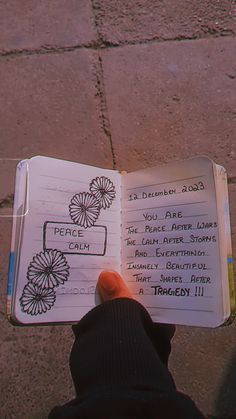 PEACE
CALM
12 DECEMBER 2023
YOU ARE
THE PEACE AFTER WARS
THE CALM AFTER STORMS
AND EVERYTHING
INSANELY BEAUTIFUL
THAT SHAPES AFTER
A TRAGEDY !!!